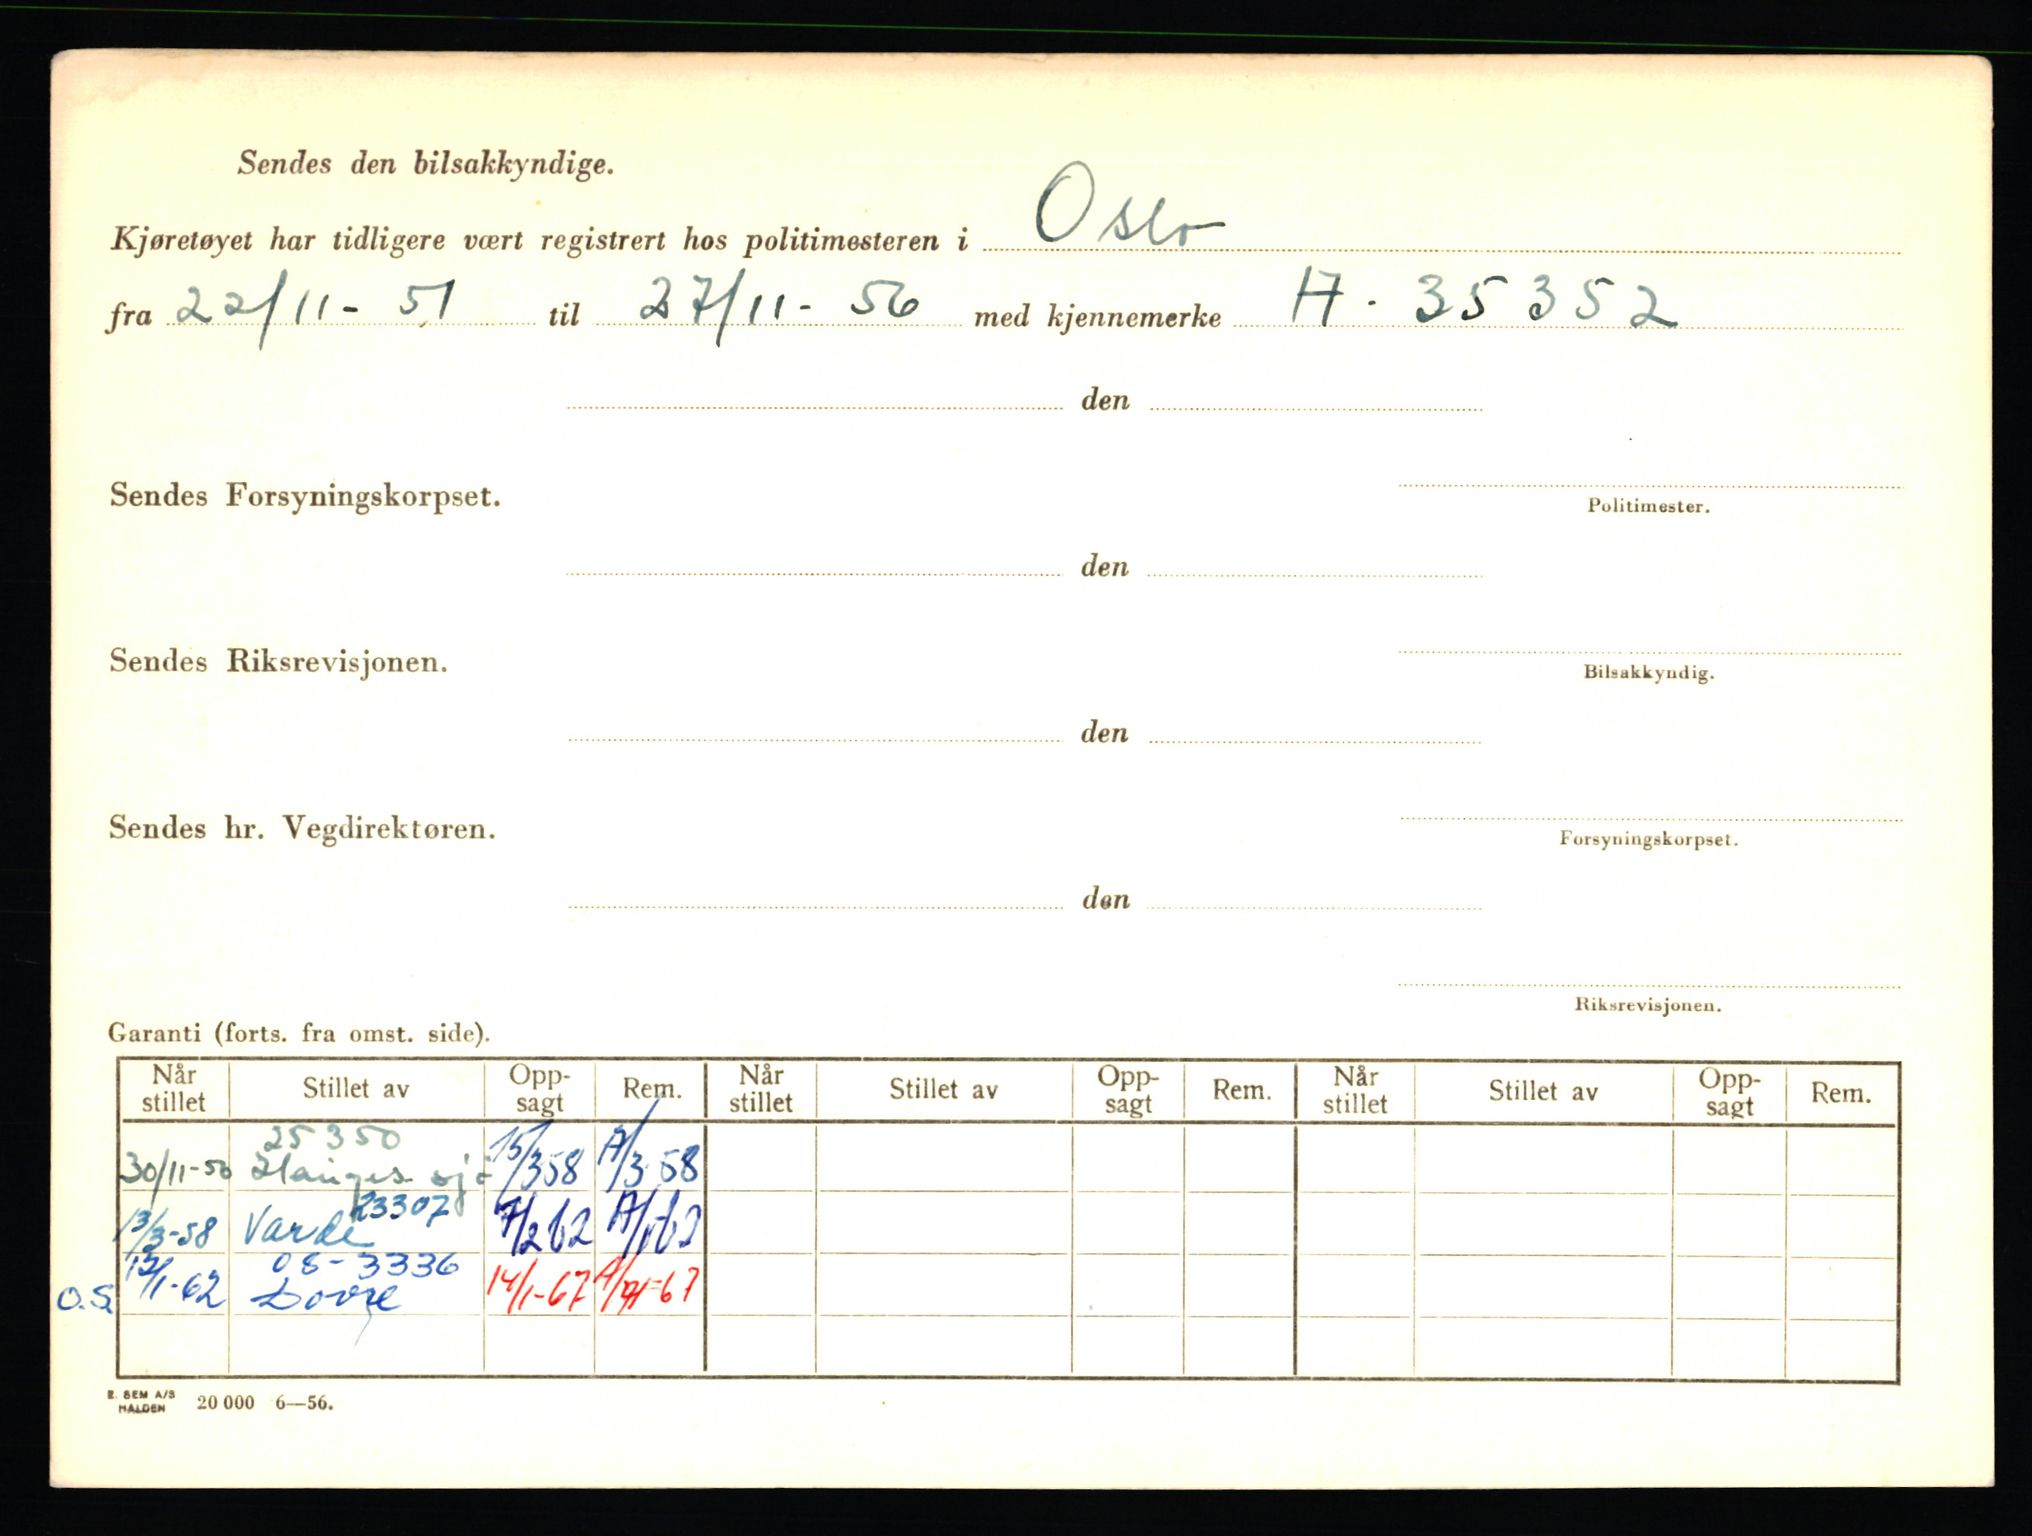 Sendes den bilsakkyndige.
Kjøretøyet har tidligere vært registrert hos politimesteren i Oslo
fra 22/11-51 til 27/11-56 med kjennemerke A-35352
den
Sendes Forsyningskorpset.
Politimester.
den
Sendes Riksrevisjonen.
Bilsakkyndig.
den
Sendes hr. Vegdirektøren.
Forsyningskorpset.
den
Riksrevisjonen.
Garanti (forts. fra omst. side).
Når stillet Stillet av Opp-sagt Rem. Når stillet Stillet av Opp-sagt Rem. Når stillet Stillet av Opp-sagt Rem.
25350
30/11-56 15/3 58 /3-58
23307
13/3-58 Varde /2 62
08-3336
O.S. 12/1-62 Dovre 14/1-67
E. SEM A/S
HALDEN 20 000 6—56.